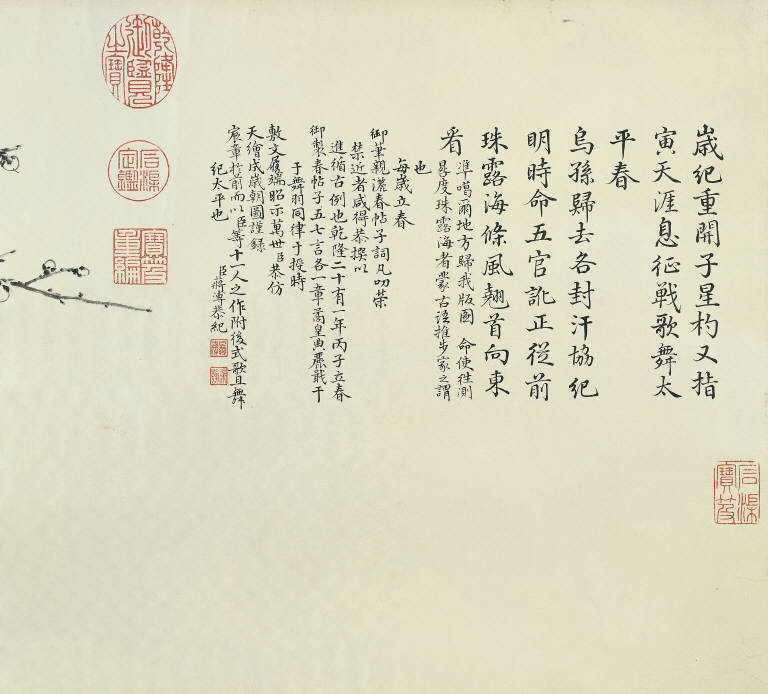 歲紀重開子星杓又指
寅天涯息征戰歌舞太
平春
烏孫歸去各封汗協紀
明時命五官訛正從前
珠露海條風翹首向東
看
準噶爾地方歸我版圖 命使往測
晷度珠露海者蒙古語推步家之謂
也
每歲立春
御筆親灑春帖子詞凡叨榮
禁近者咸得恭撰以
進循古例也乾隆二十有一年丙子立春
御製春帖子五七言各一章蒿皇典麗戢干
于舞羽同律于授時
敷文履端昭示萬世臣恭仿
天繪成歲朝圖謹錄
宸章於前而以臣等十一人之作附後式歌且舞
紀太平也
臣蔣溥恭紀
乾隆御覽之寶
石渠定鑑
寶笈重編
石渠寶笈